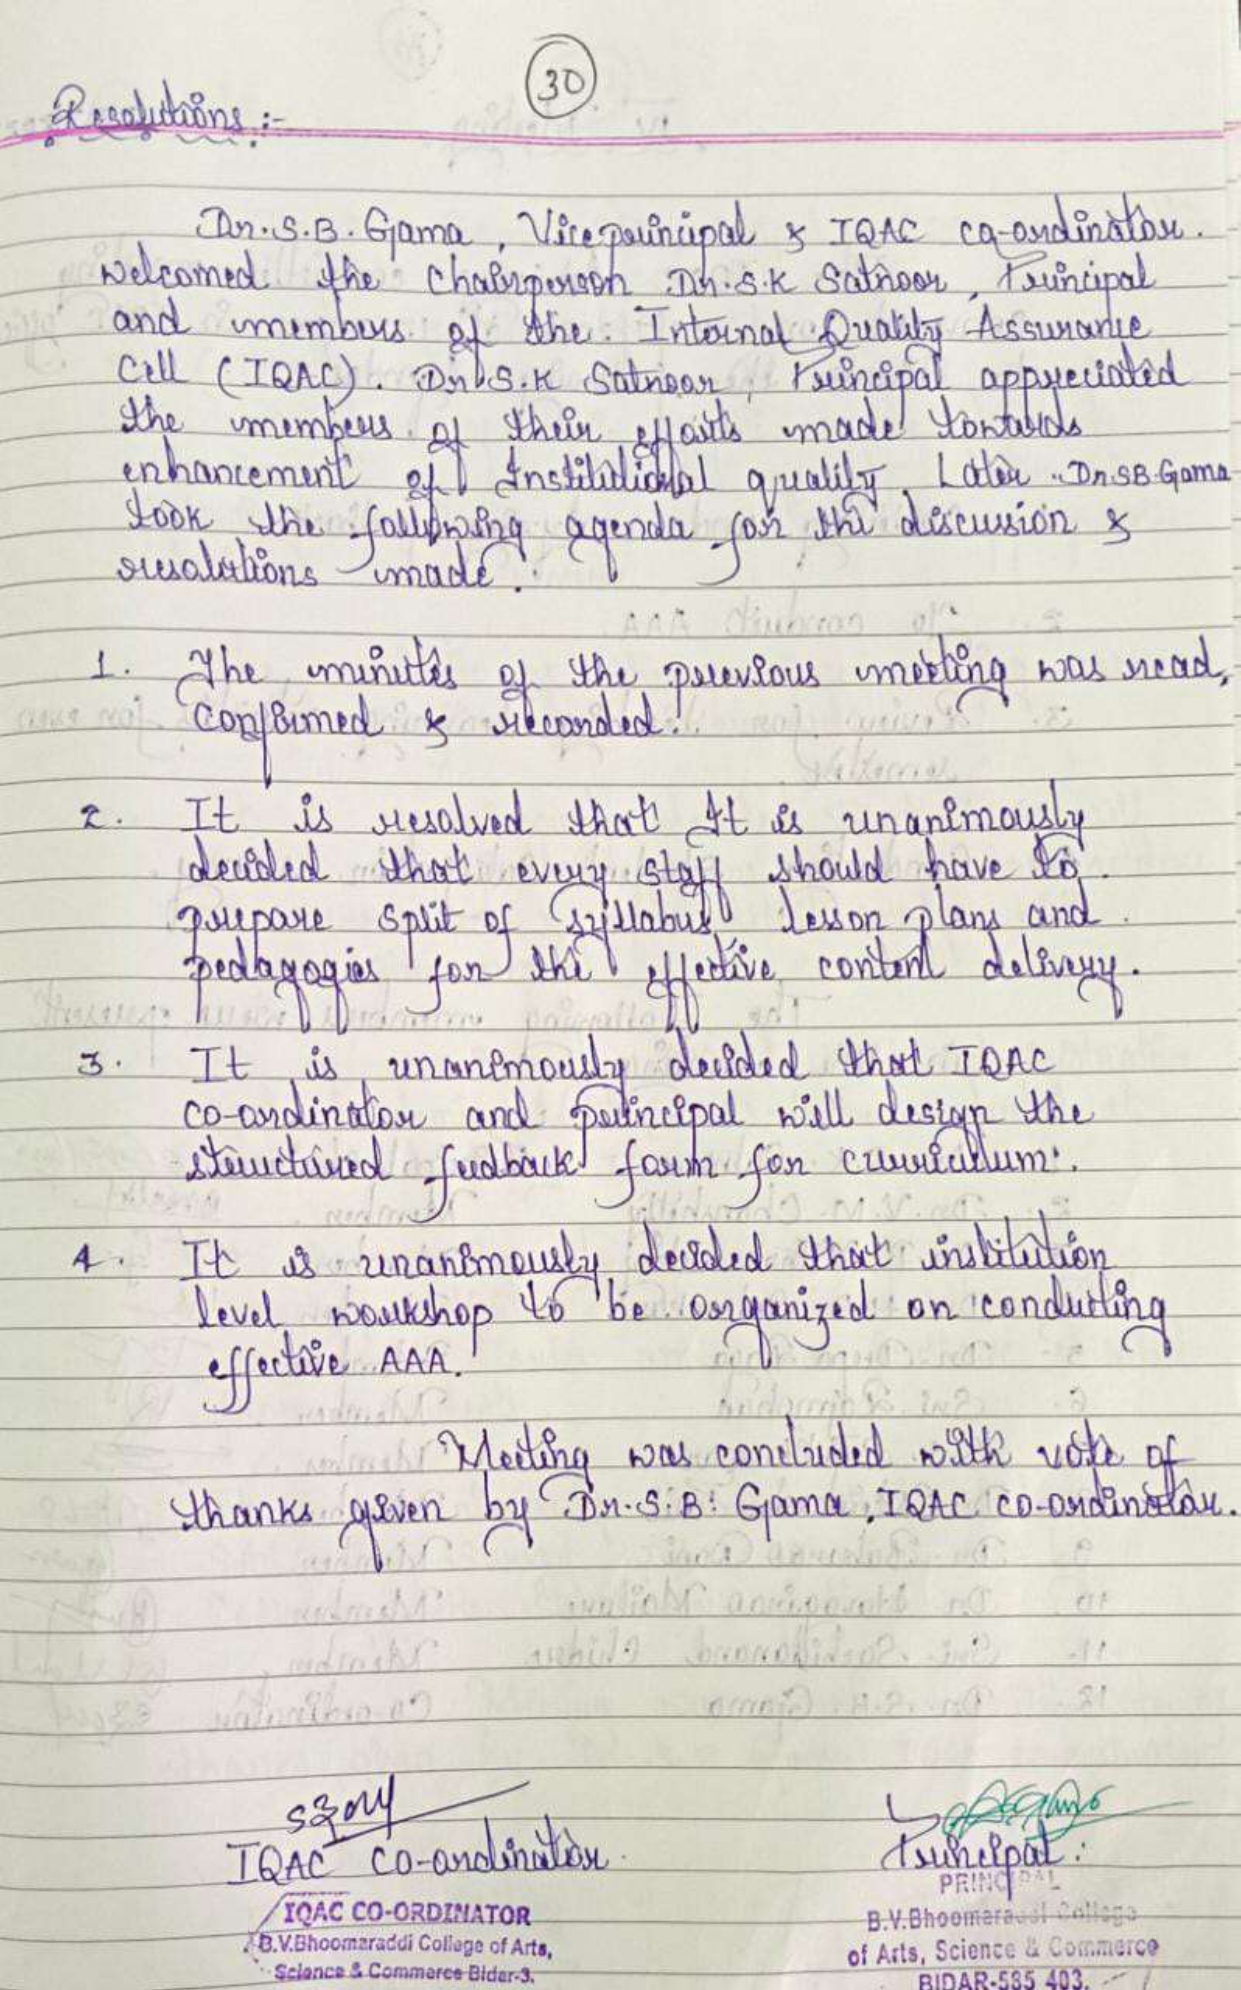 30
Resolutions :-
Dr. S.B. Gama, Vice principal & IQAC co-ordinator.
welcomed the Chairperson Dr. S.K Satnoor, Principal
and members of the Internal Quality Assurance
Cell (IQAC). Dr. S.K Satnoor, Principal appreciated
the members of their efforts made towards
enhancement of Institutional quality. Later Dr. SB Gama
took the following agenda for the discussion &
resolutions made.
1. The minutes of the previous meeting was read,
confirmed & recorded.
2. It is resolved that It is unanimously
decided that every staff should have to
prepare split of syllabus lesson plans and
pedagogies for the effective content delivery.
3. It is unanimously decided that IQAC
co-ordinator and principal will design the
structured feedback form for curriculum.
4. It is unanimously decided that institution
level workshop to be organized on conducting
effective AAA.
Meeting was concluded with vote of
thanks given by Dr. S. B. Gama, IQAC co-ordinator.
IQAC Co-ordinator.
Principal.
IQAC CO-ORDINATOR
B.V.Bhoomaraddi College of Arts,
Science & Commerce Bidar-3.
PRINCIPAL
B.V.Bhoomaraddi College
of Arts, Science & Commerce
BIDAR-585 403.